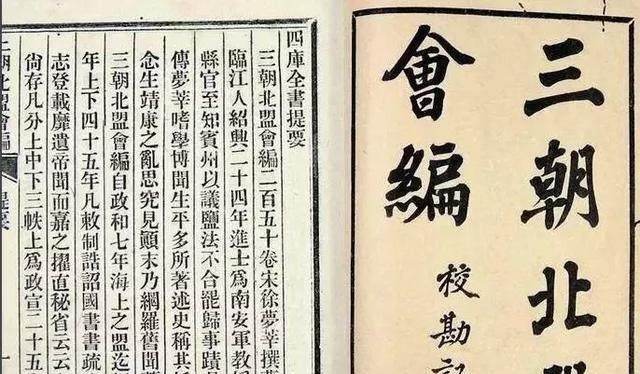 三朝北
會編
校勘記
四庫全書提要
三朝北盟會編二百五十卷宋徐夢莘撰
臨江人紹興二十四年進士為南安軍教
縣官至知賓州以議鹽法不合罷歸事蹟
傳夢莘嗜學博聞生平多所著述史稱其
念生靖康之亂思究見顛末乃網羅舊聞
三朝北盟會編自政和七年海上之盟迄
年上下四十五年凡敕制誥詔國書書疏
志登載靡遺帝聞而嘉之擢直秘省云云
尙存凡分上中下三帙上爲政宣二十五
朝北盟會編
提要
一